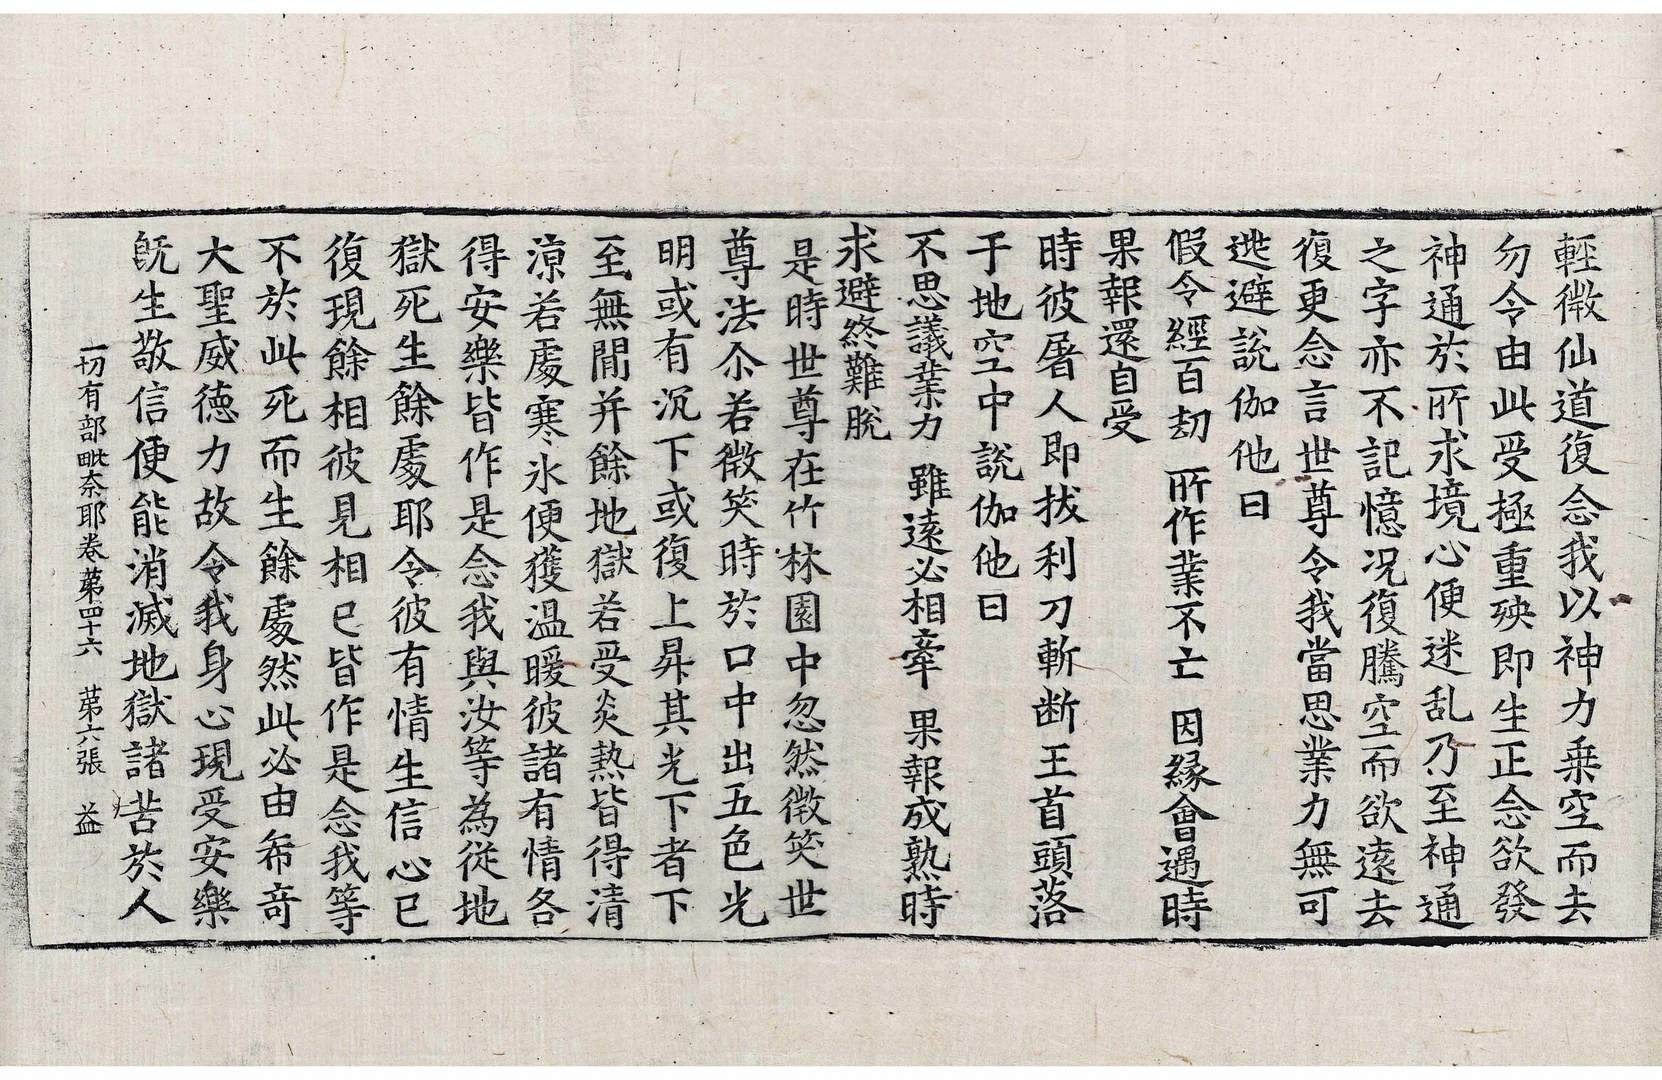 輕微仙道復念我以神力乗空而去
勿令由此受極重殃即生正念欲發
神通於所求境心便迷乱乃至神通
之字亦不記憶况復騰空而欲遠去
復更念言世尊令我當思業力無可
逃避說伽他曰
假令經百劫　所作業不亡　因縁會遇時
果報還自受
時彼屠人即拔利刀斬断王首頭落
于地空中說伽他曰
不思議業力　雖遠必相牽　果報成熟時
求避終難脫
是時世尊在竹林園中忽然微笑世
尊法尒若微笑時於口中出五色光
明或有沉下或復上昇其光下者下
至無間并餘地獄若受炎熱皆得清
涼若處寒氷便獲温暖彼諸有情各
得安樂皆作是念我與汝等為從地
獄死生餘處耶令彼有情生信心已
復現餘相彼見相已皆作是念我等
不於此死而生餘處然此必由希竒
大聖威德力故令我身心現受安樂
旣生敬信便能消滅地獄諸苦於人
一切有部毗奈耶卷第四十六　第六張　益